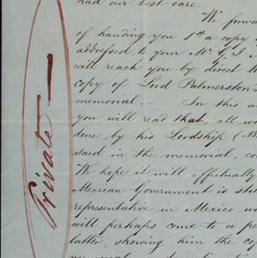 had our best care.
We forwa
of handing you 1st a copy
addressed to your Mr
will reach you by direct
copy of Lord Palmerston
memorial. In this a
you will read that, all
done by his Lordship
said in the memorial, co
We hope it will effectually
Mexican Government is sh
representative in Mexico
will perhaps come to a
latter, showing him the co
Private